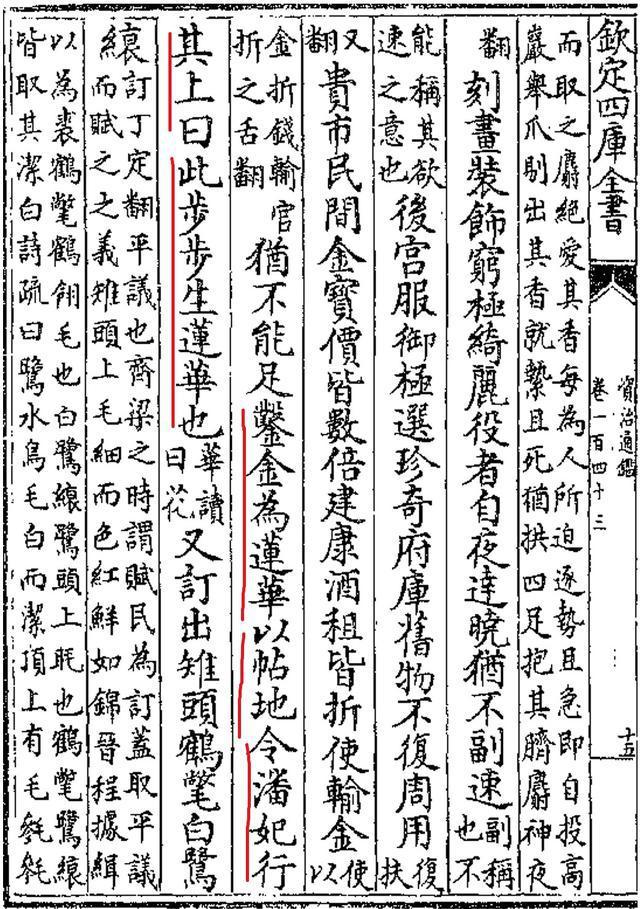 欽定四庫全書
資治通鑑
卷一百四十三
十五
而取之麝絕愛其香每為人所迫逐勢且急即自投高
巖舉爪剔出其香就縶且死猶拱四足抱其臍麝神夜
翻刻畫裝飾窮極綺麗役者自夜達曉猶不副速副稱也不
能稱其欲速之意也後宮服御極選珍奇府庫舊物不復周用復扶
又翻貴市民間金寶價皆數倍建康酒租皆折使輸金使以
金折錢輸官折之舌翻猶不能足鑿金為蓮華以帖地令潘妃行
其上曰此步步生蓮華也華讀曰花又訂出雉頭鶴氅白鷺
縗訂丁定翻平議也齊梁之時謂賦民為訂蓋取平議
而賦之之義雉頭上毛細而色紅鮮如錦晉程據緝
以為裘鶴氅鶴翎毛也白鷺縗鷺頭上毦也鶴氅鷺縗
皆取其潔白詩疏曰鷺水鳥毛白而潔頂上有毛毿毿